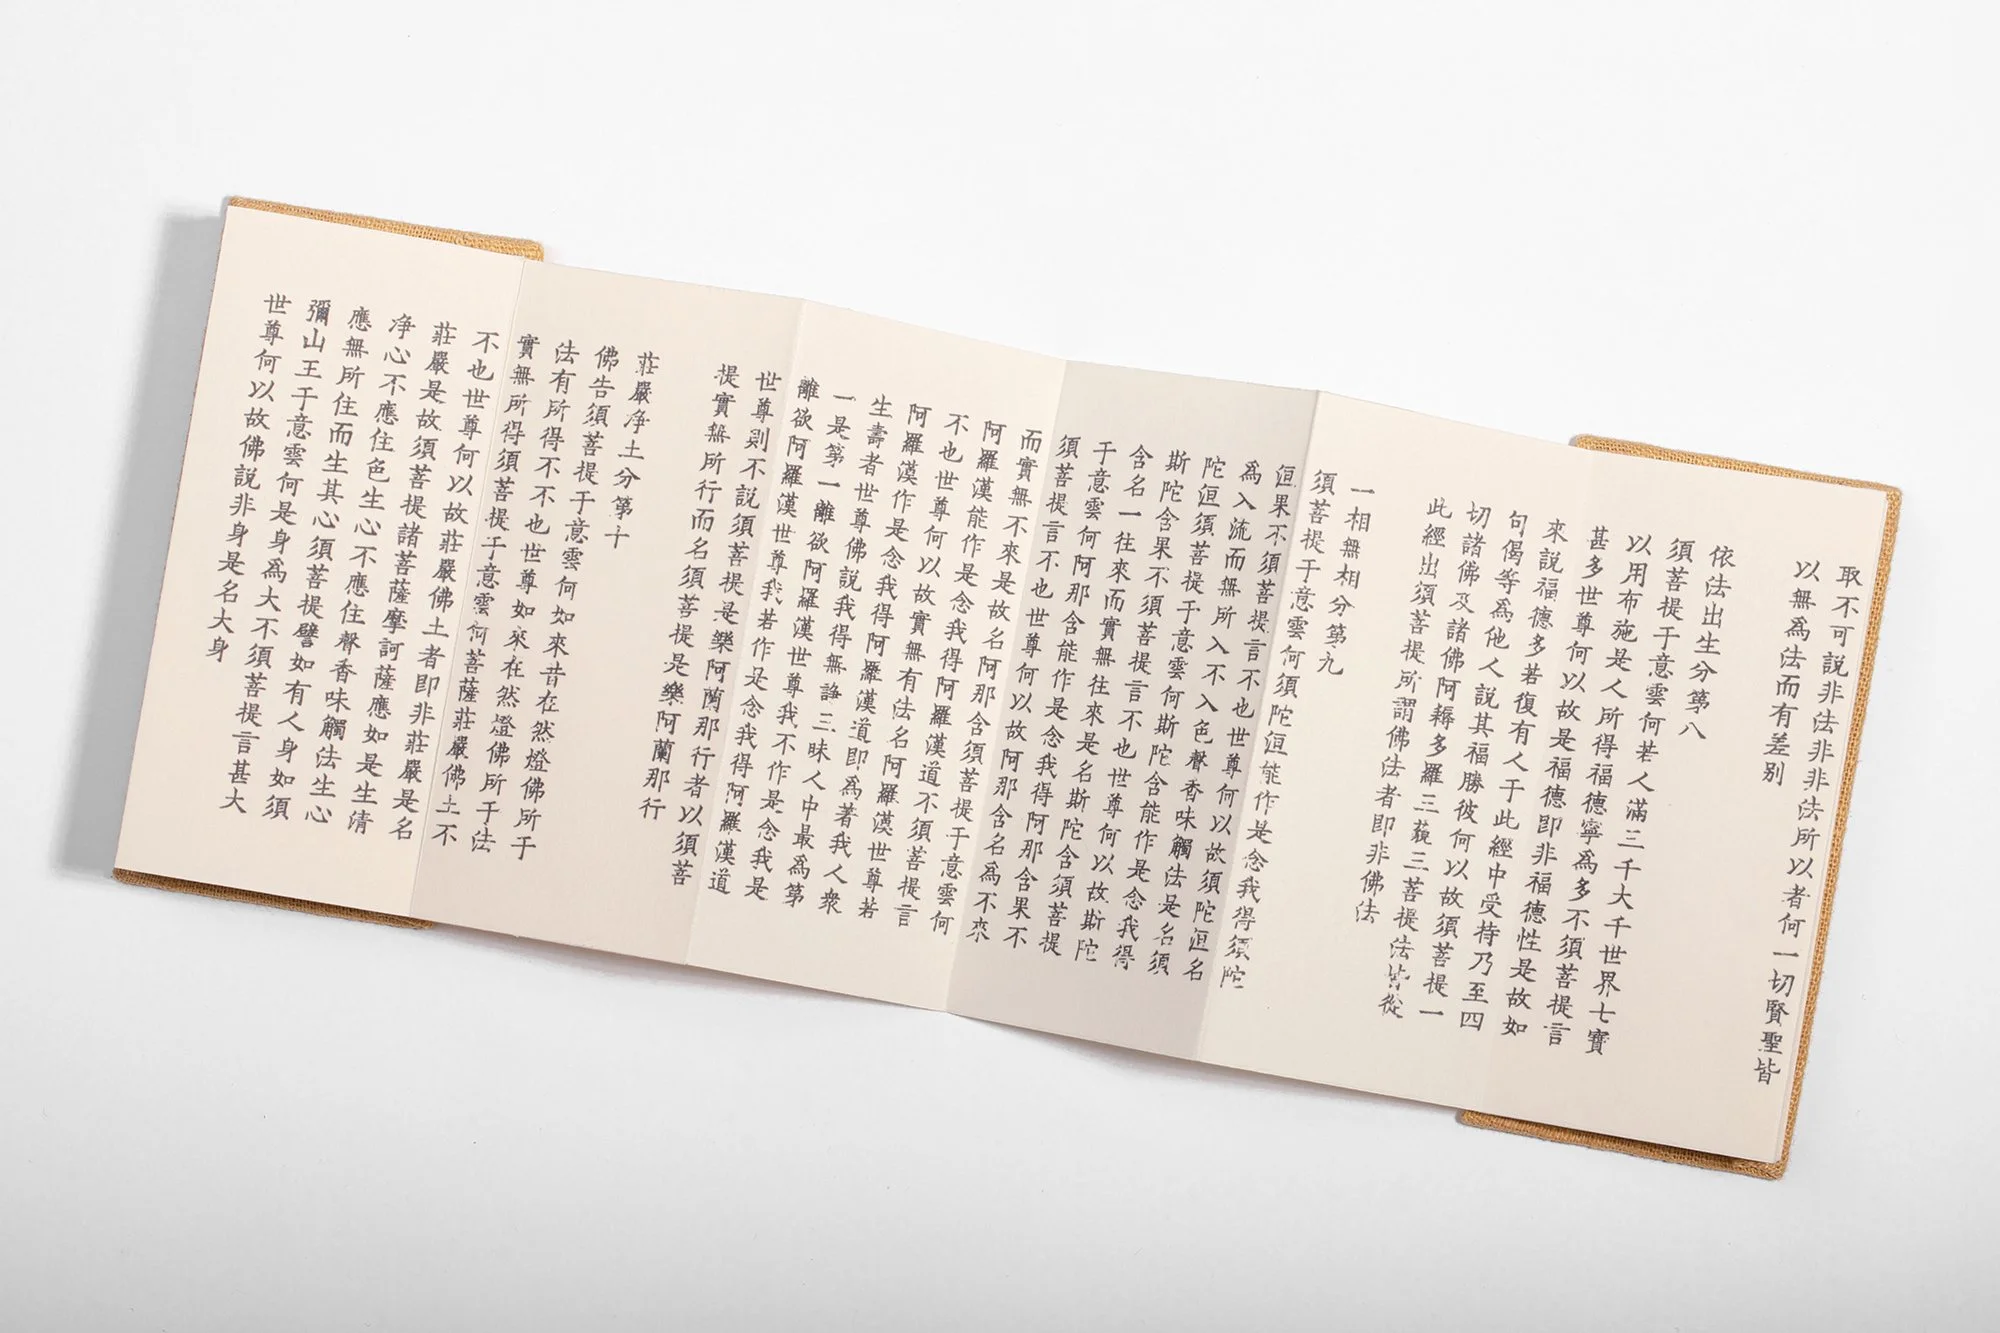 取不可說非法非非法所以者何一切賢聖皆
以無爲法而有差别
依法出生分第八
須菩提于意雲何若人滿三千大千世界七寶
以用布施是人所得福德寧爲多不須菩提言
甚多世尊何以故是福德即非福德性是故如
來說福德多若復有人于此經中受持乃至四
句偈等爲他人說其福勝彼何以故須菩提一
切諸佛及諸佛阿耨多羅三藐三菩提法皆從
此經出須菩提所謂佛法者即非佛法
一相無相分第九
須菩提于意雲何須陀洹能作是念我得須陀
洹果不須菩提言不也世尊何以故須陀洹名
爲入流而無所入不入色聲香味觸法是名須
陀洹須菩提于意雲何斯陀含能作是念我得
斯陀含果不須菩提言不也世尊何以故斯陀
含名一往來而實無往來是名斯陀含須菩提
于意雲何阿那含能作是念我得阿那含果不
須菩提言不也世尊何以故阿那含名爲不來
而實無不來是故名阿那含須菩提于意雲何
阿羅漢能作是念我得阿羅漢道不須菩提言
不也世尊何以故實無有法名阿羅漢世尊若
阿羅漢作是念我得阿羅漢道即爲著我人衆
生壽者世尊佛說我得無諍三昧人中最爲第
一是第一離欲阿羅漢世尊我不作是念我是
離欲阿羅漢世尊我若作是念我得阿羅漢道
世尊則不說須菩提是樂阿蘭那行者以須菩
提實無所行而名須菩提是樂阿蘭那行
莊嚴净土分第十
佛告須菩提于意雲何如來昔在然燈佛所于
法有所得不不也世尊如來在然燈佛所于法
實無所得須菩提于意雲何菩薩莊嚴佛土不
不也世尊何以故莊嚴佛土者即非莊嚴是名
莊嚴是故須菩提諸菩薩摩訶薩應如是生清
净心不應住色生心不應住聲香味觸法生心
應無所住而生其心須菩提譬如有人身如須
彌山王于意雲何是身爲大不須菩提言甚大
世尊何以故佛說非身是名大身